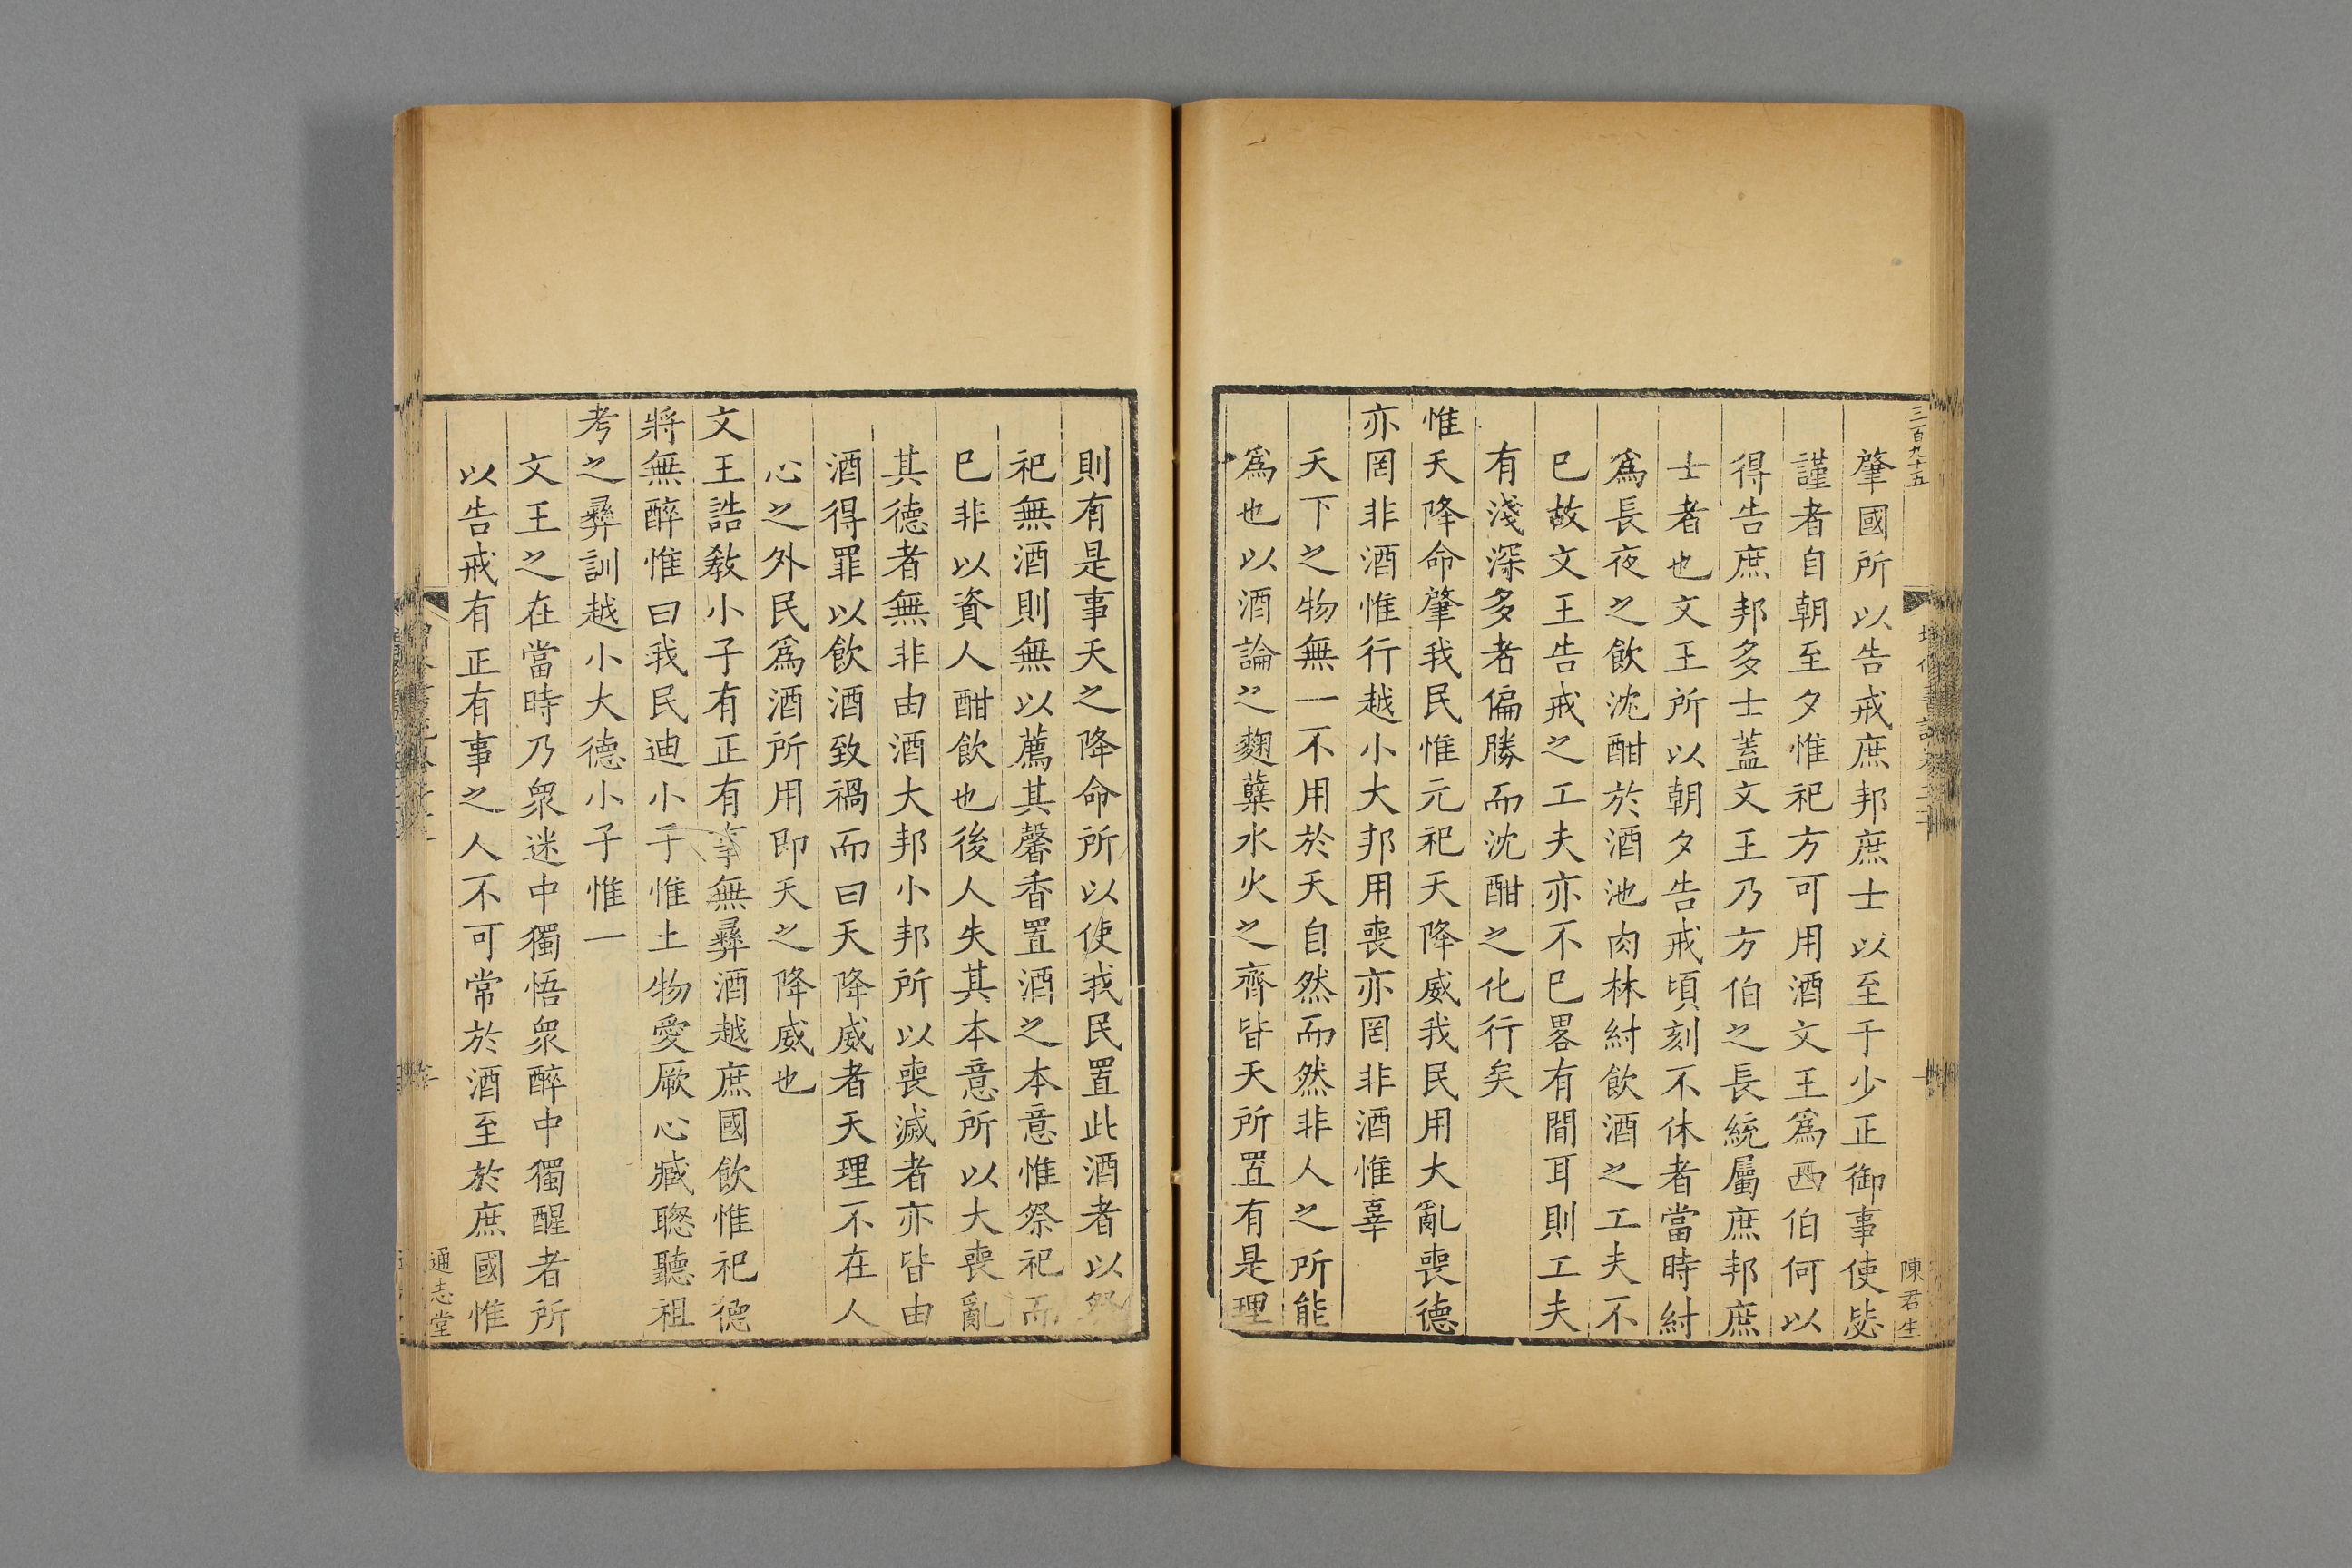 三百九十五
陳君生
肇國所以告戒庶邦庶士以至于少正御事使毖
謹者自朝至夕惟祀方可用酒文王爲西伯何以
得告庶邦多士蓋文王乃方伯之長統屬庶邦庶
士者也文王所以朝夕告戒頃刻不休者當時紂
爲長夜之飲沈酣於酒池肉林紂飲酒之工夫不
已故文王告戒之工夫亦不已畧有間耳則工夫
有淺深多者偏勝而沈酣之化行矣
惟天降命肇我民惟元祀天降威我民用大亂喪德
亦罔非酒惟行越小大邦用喪亦罔非酒惟辜
天下之物無一不用於天自然而然非人之所能
爲也以酒論之麴糵水火之齊皆天所置有是理
則有是事天之降命所以使我民置此酒者以祭
祀無酒則無以薦其馨香置酒之本意惟祭祀而
已非以資人酣飲也後人失其本意所以大喪亂
其德者無非由酒大邦小邦所以喪滅者亦皆由
酒得罪以飲酒致禍而曰天降威者天理不在人
心之外民爲酒所用即天之降威也
文王誥教小子有正有事無彝酒越庶國飲惟祀德
將無醉惟曰我民迪小子惟土物愛厥心臧聰聽祖
考之彝訓越小大德小子惟一
文王之在當時乃衆迷中獨悟衆醉中獨醒者所
以告戒有正有事之人不可常於酒至於庶國惟
通志堂